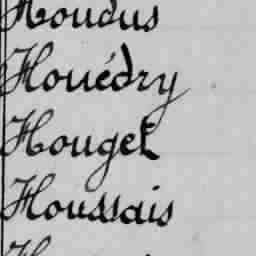 Houdus
Houédry
Houget
Houssais